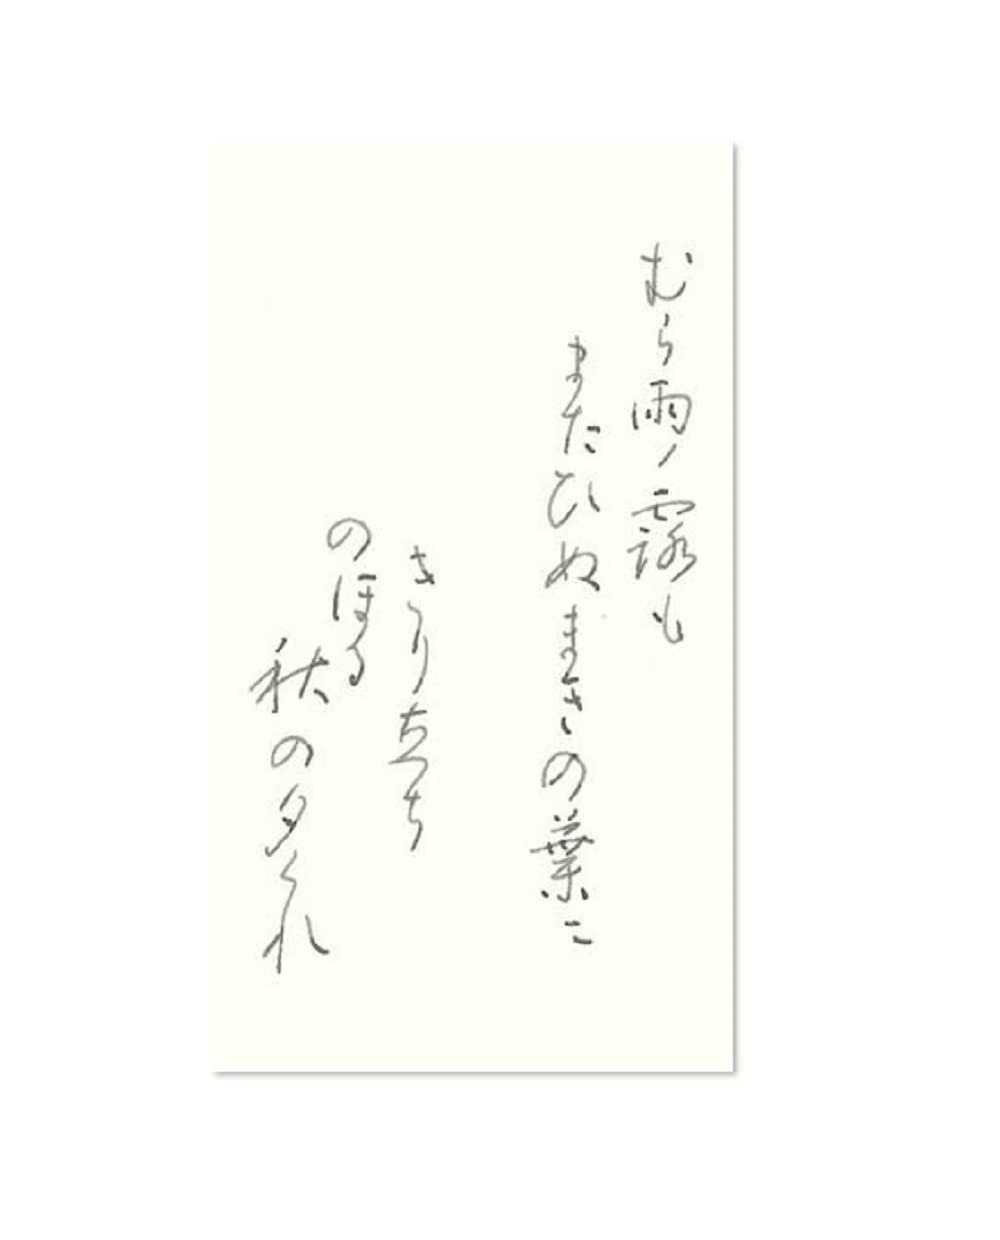 むら雨ノ露も
またひぬまきの葉に
きり立ち
のほる
秋の夕くれ